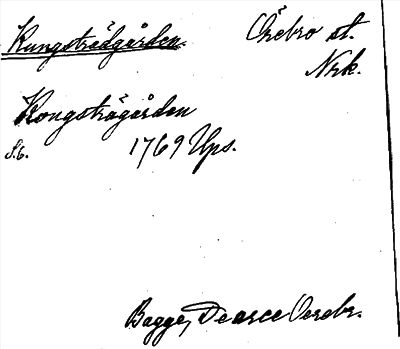 Kungsträdgården.
Örebro st.
Nrk.
Kongsträgården
S. 6.
1769 Ups.
Bagge, De arce Oerebr.